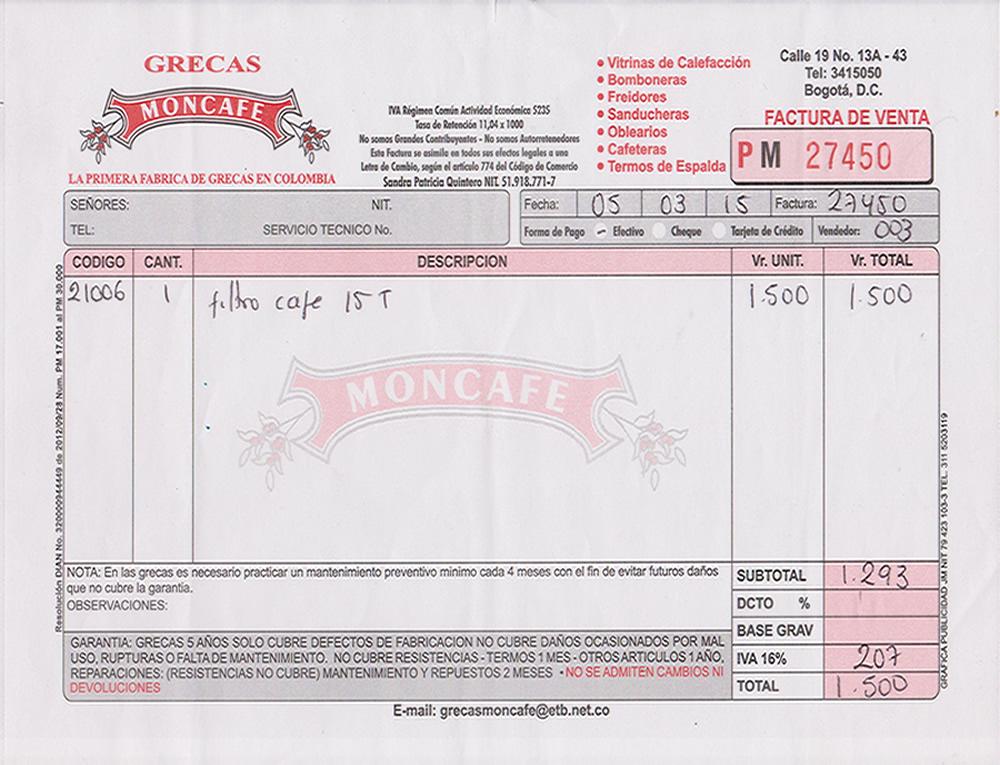 GRECAS
MONCAFE
LA PRIMERA FABRICA DE GRECAS EN COLOMBIA
IVA Régimen Común Actividad Económica 5235
Tasa de Retención 11,04 x 1000
No somos Grandes Contribuyentes - No somos Autorretenedores
Esta Factura se asimila en todos sus efectos legales a una
Letra de Cambio, según el artículo 774 del Código de Comercio
Sandra Patricia Quintero NIT. 51.918.771-7
• Vitrinas de Calefacción
• Bomboneras
• Freidores
• Sanducheras
• Oblearios
• Cafeteras
• Termos de Espalda
Calle 19 No. 13A - 43
Tel: 3415050
Bogotá, D.C.
FACTURA DE VENTA
PM 27450
SEÑORES: NIT.
TEL: SERVICIO TECNICO No.
Fecha: 05 03 15 Factura: 27450
Forma de Pago Efectivo Cheque Tarjeta de Crédito Vendedor: 003
CODIGO CANT. DESCRIPCION Vr. UNIT. Vr. TOTAL
21006 1 filtro cafe 15 T 1.500 1.500
MONCAFE
NOTA: En las grecas es necesario practicar un mantenimiento preventivo minimo cada 4 meses con el fin de evitar futuros daños
que no cubre la garantía.
OBSERVACIONES:
SUBTOTAL 1.293
DCTO %
BASE GRAV
IVA 16% 207
TOTAL 1.500
GARANTIA: GRECAS 5 AÑOS SOLO CUBRE DEFECTOS DE FABRICACION NO CUBRE DAÑOS OCASIONADOS POR MAL
USO, RUPTURAS O FALTA DE MANTENIMIENTO. NO CUBRE RESISTENCIAS - TERMOS 1 MES - OTROS ARTICULOS 1 AÑO,
REPARACIONES: (RESISTENCIAS NO CUBRE) MANTENIMIENTO Y REPUESTOS 2 MESES • NO SE ADMITEN CAMBIOS NI
DEVOLUCIONES
E-mail: grecasmoncafe@etb.net.co
Resolución DIAN No. 320000944449 de 2012/09/28 Num. PM 17.001 al PM 30.000
GRAFICA PUBLICIDAD JM NIT 79 423 103-3 TEL. 311 5203119